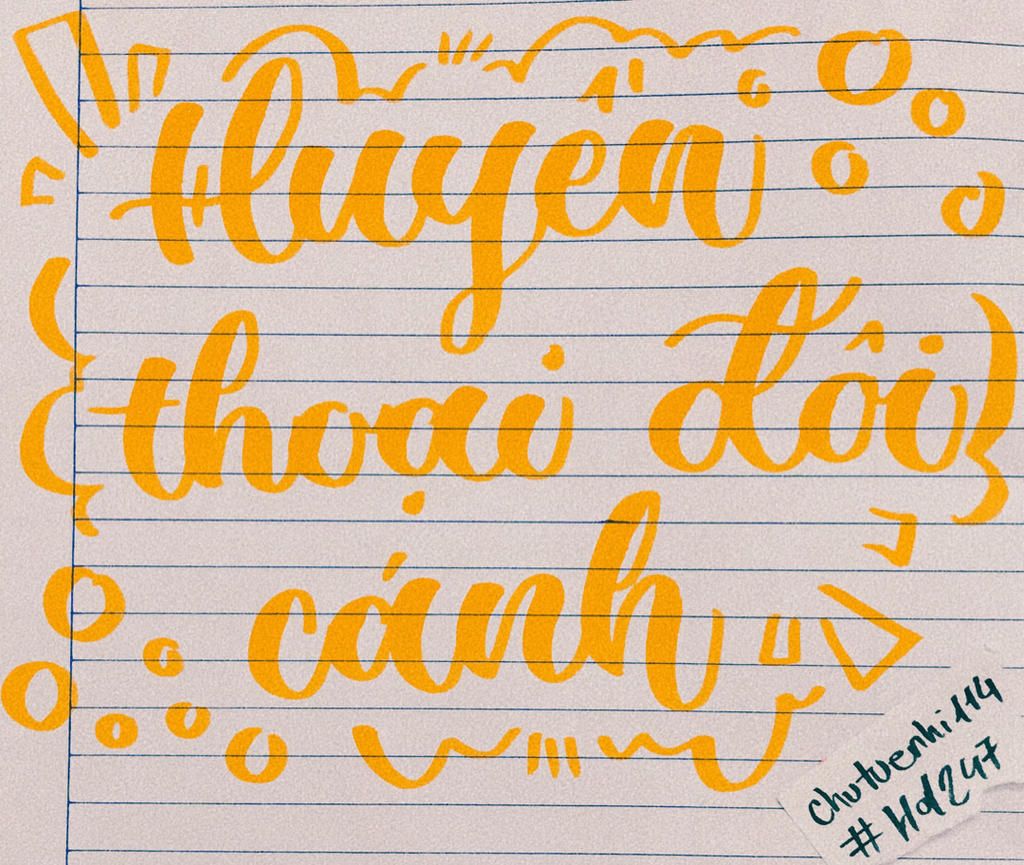 Huyền
thoại đôi
cánh
chutuenhi114
#Hd247